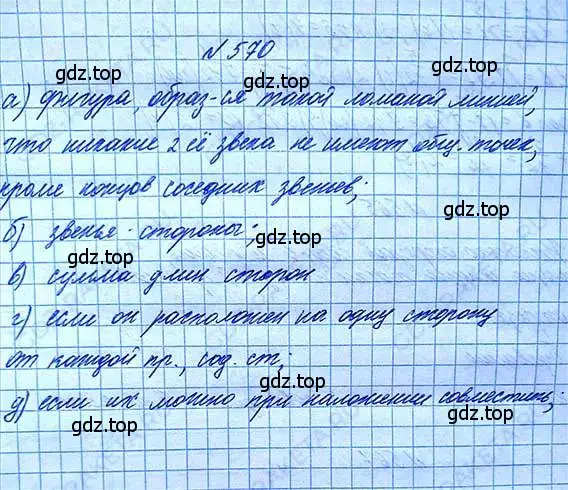 № 570
gdz.top gdz.top
а) фигура, образ-ся такой ломаной линией,
что никакие 2 её звена не имеют общ. точек,
gdz.top gdz.top
кроме концов соседних звеньев;
б) звенья - стороны;
gdz.top gdz.top
в) сумма длин сторон
г) если он расположен на одну сторону
gdz.top gdz.top
от каждой пр., сод. ст;
gdz.top
д) если их можно при наложении совместить;
gdz.top gdz.top